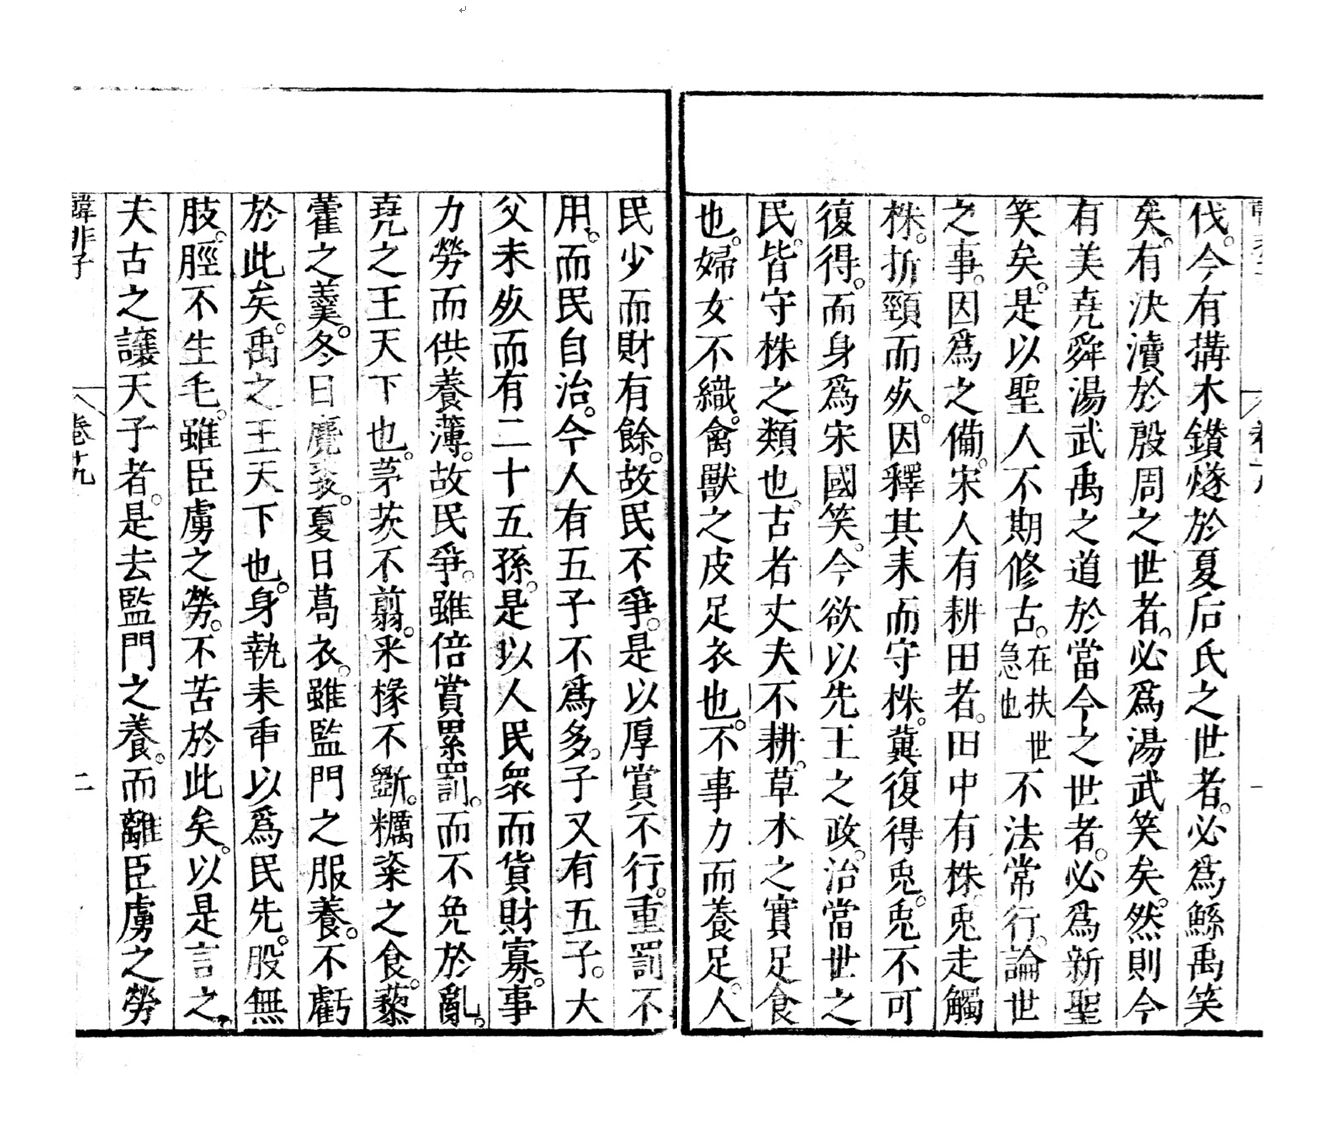 伐。今有搆木鑚燧於夏后氏之世者。必爲鯀禹笑
矣。有决瀆於殷周之世者。必爲湯武笑矣。然則今
有美堯舜湯武禹之道於當今之世者。必爲新聖
笑矣。是以聖人不期修古。在扶世急也不法常行。論世
之事。因爲之備。宋人有耕田者。田中有株。兎走觸
株。折頸而㱙。因釋其耒而守株。冀復得兎。兎不可
復得。而身爲宋國笑。今欲以先王之政。治當世之
民。皆守株之類也。古者丈夫不耕。草木之實足食
也。婦女不織。禽獸之皮足衣也。不事力而養足。人
民少而財有餘。故民不爭。是以厚賞不行。重罰不
用。而民自治。今人有五子不爲多。子又有五子。大
父未㱙而有二十五孫。是以人民衆而貨財寡。事
力勞而供養薄。故民爭。雖倍賞累罰。而不免於亂。
堯之王天下也。茅茨不翦。采椽不斵。糲粢之食。藜
藿之羹。冬日麑裘。夏日葛衣。雖監門之服養。不虧
於此矣。禹之王天下也。身執耒臿以爲民先。股無
肢。脛不生毛。雖臣虜之勞。不苦於此矣。以是言之。
夫古之讓天子者。是去監門之養。而離臣虜之勞
韓非子 卷十九 二